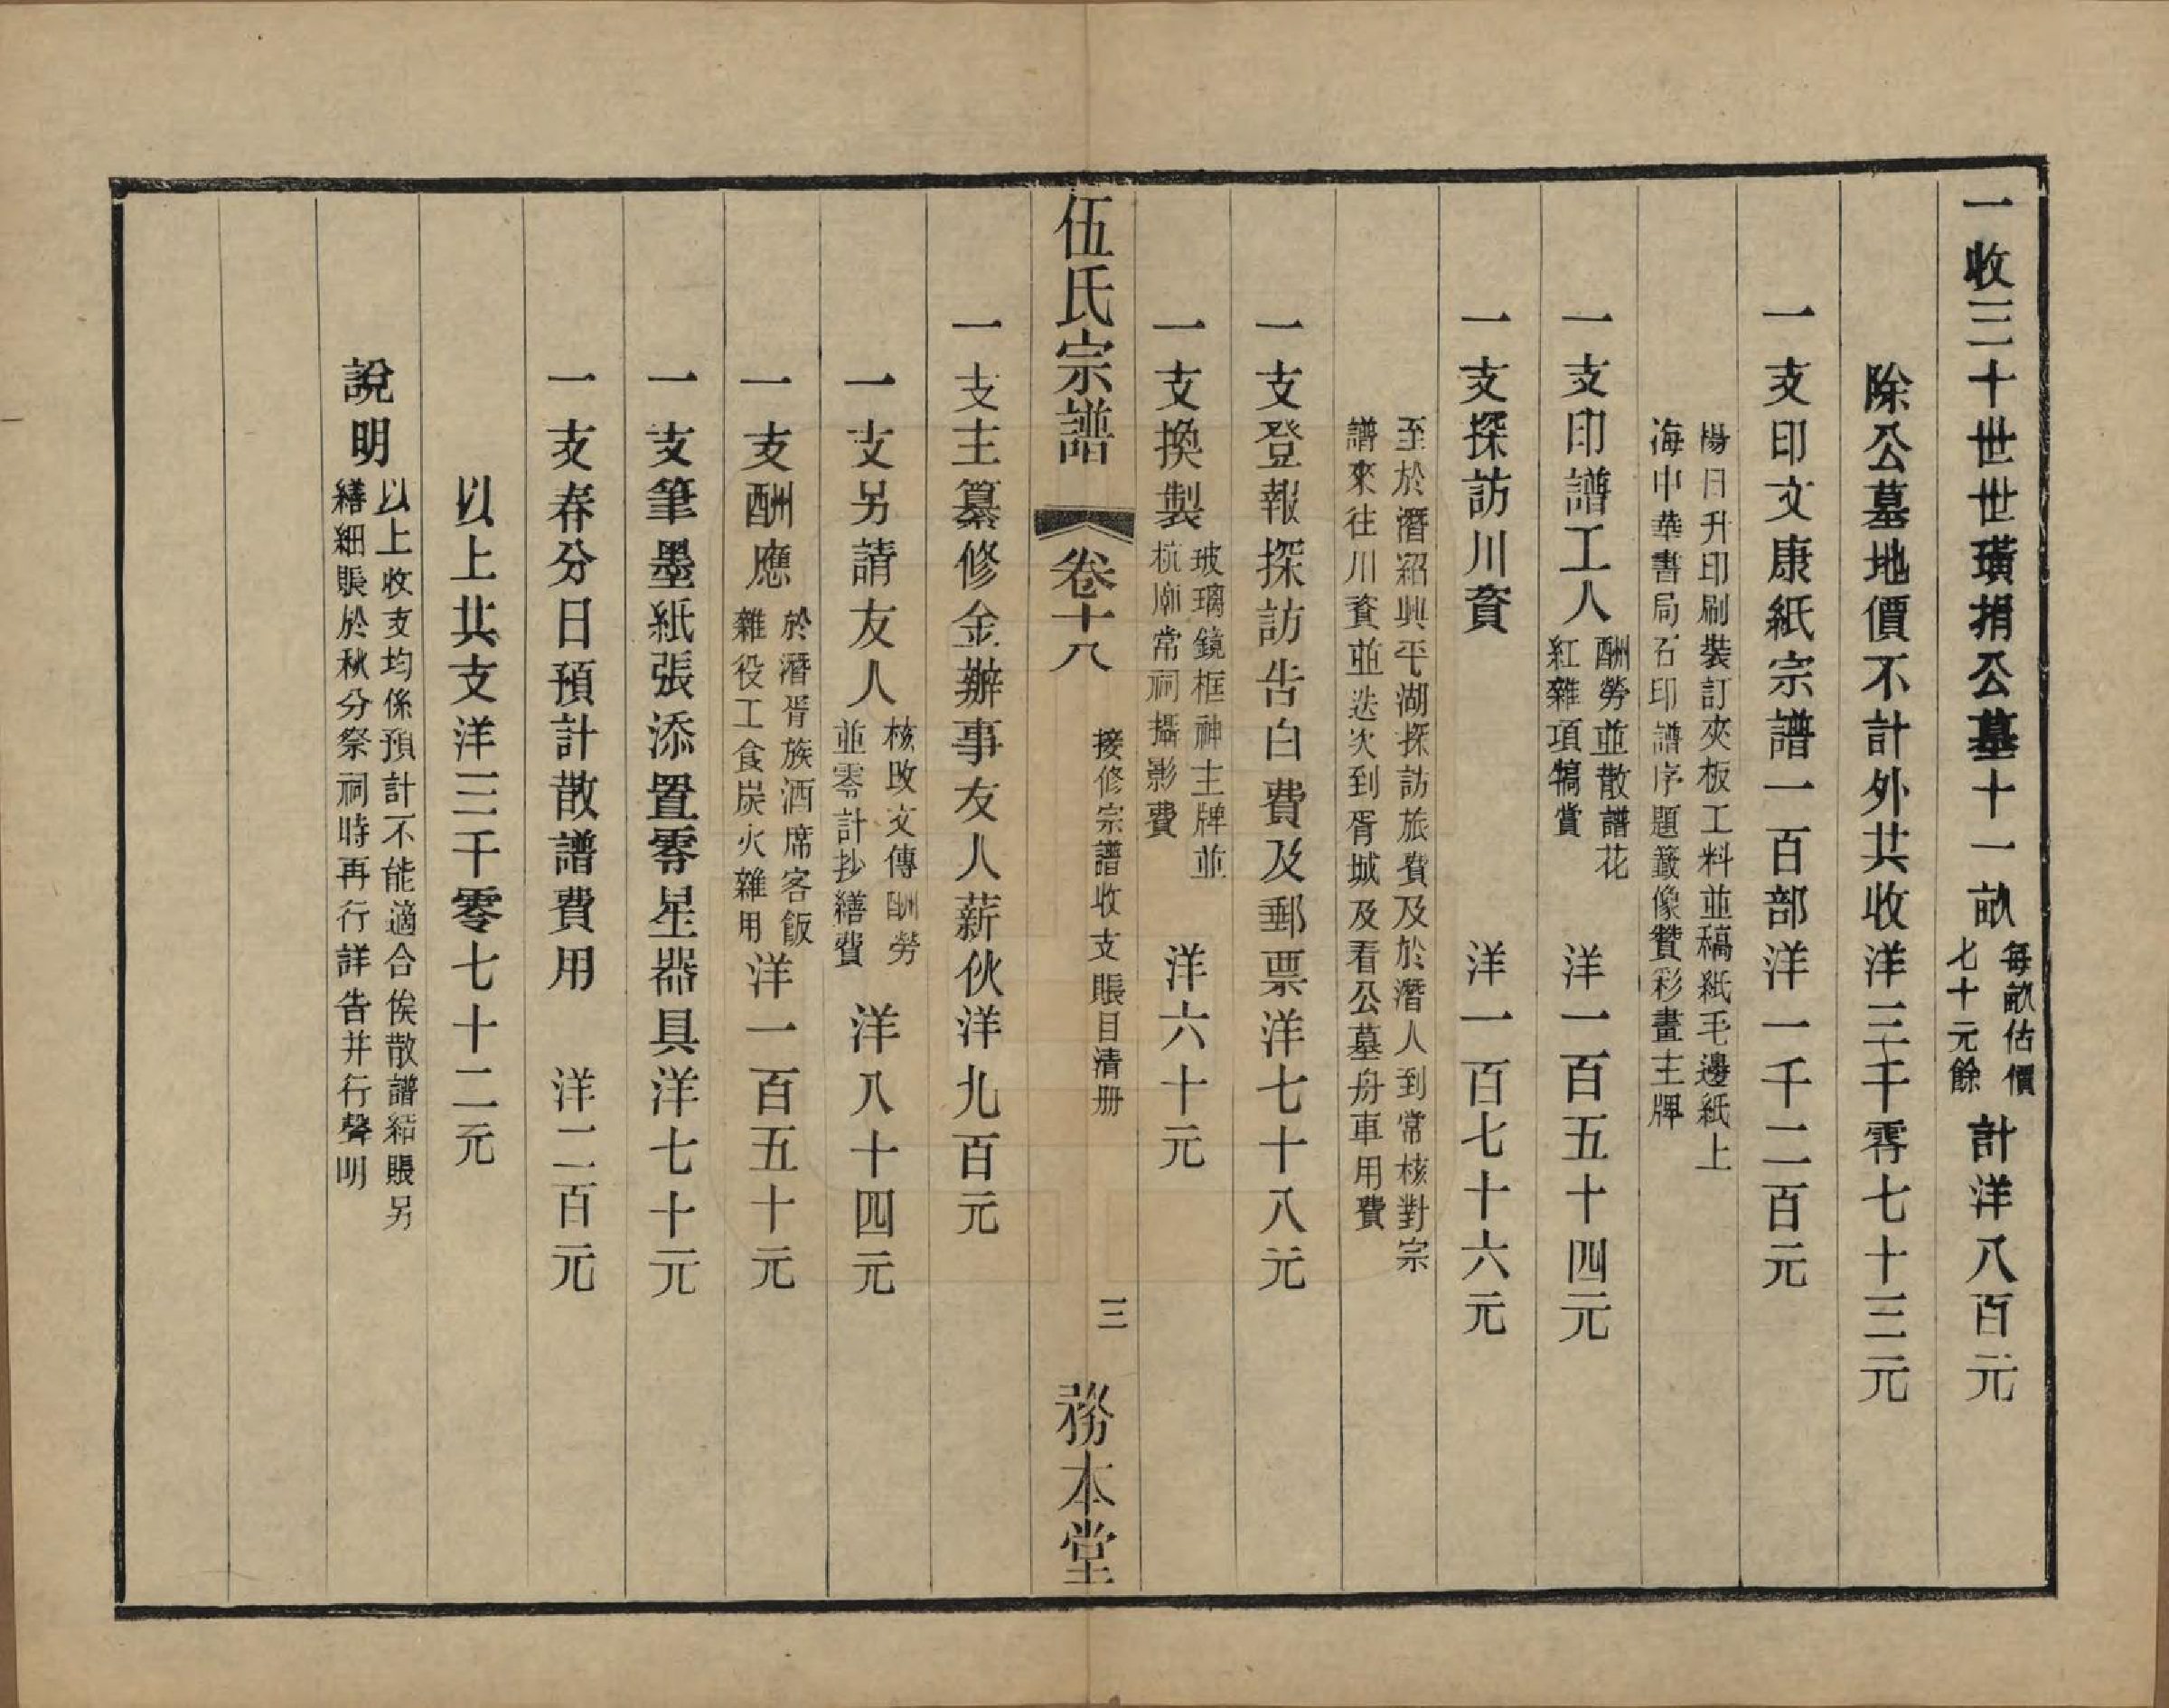 一收三十世世璜捐公墓十一畝
每畝估價
七十元餘
計洋八百元
除公墓地價不計外共收洋三千零七十三元
一支印文康紙宗譜一百部洋一千二百元
楊日升印刷裝訂夾板工料並稿紙毛邊紙上
海中華書局石印譜序題籤像贊彩畫主牌
一支印譜工人
酬勞並散譜花
紅雜項犒賞
洋一百五十四元
一支探訪川資
洋一百七十六元
至於潛紹興平湖探訪旅費及於潛人到常核對宗
譜來往川資並迭次到胥城及看公墓舟車用費
一支登報探訪告白費及郵票洋七十八元
一支換製
玻璃鏡框神主牌並
杭廟常祠攝影費
洋六十元
伍氏宗譜
卷十八
接修宗譜收支賬目清册
三
務本堂
一支主纂修金辦事友人薪伙洋九百元
一支另請友人
核改文傳酬勞
並零計抄繕費
洋八十四元
一支酬應
於潛胥族酒席客飯
雜役工食炭火雜用
洋一百五十元
一支筆墨紙張添置零星器具洋七十元
一支春分日預計散譜費用
洋二百元
以上共支洋三千零七十二元
說明
以上收支均係預計不能適合俟散譜結賬另
繕細賬於秋分祭祠時再行詳告并行聲明